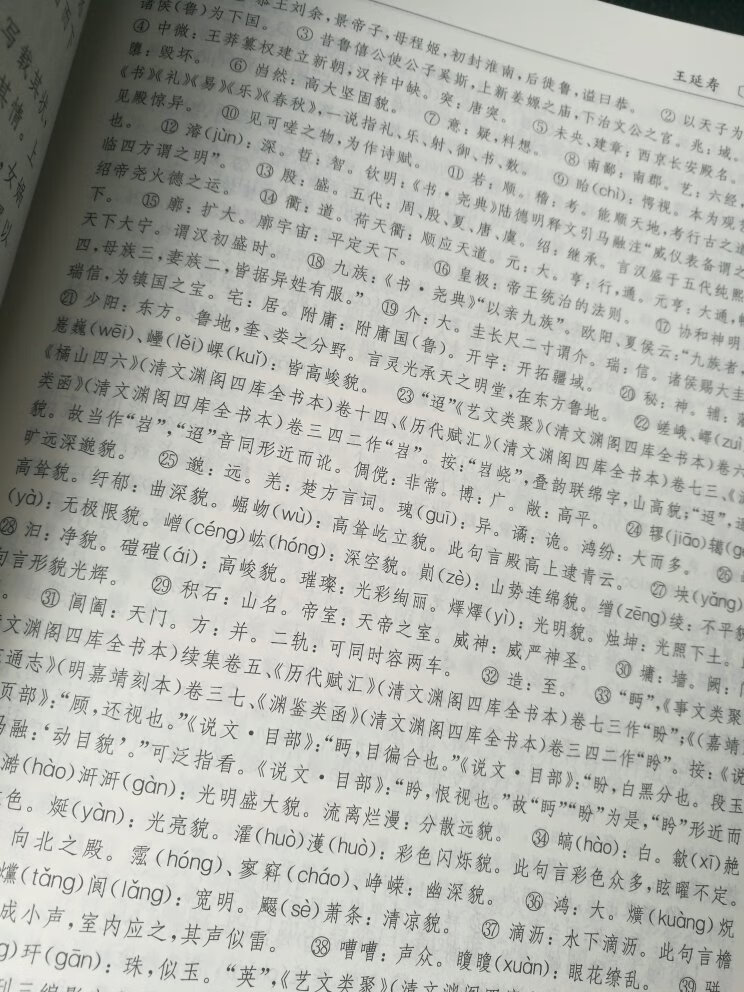 王延寿
恭王刘余，景帝子，母程姬，初封淮南，后徙鲁，谥曰恭。 ② 以天子为
诸侯(鲁)为下国。 ③ 昔鲁僖公使公子奚斯，上新姜嫄之庙，下治文公之宫。兆：域。
④ 中微：王莽篡权建立新朝，汉祚中缺。突：唐突。 ⑤ 未央、建章：西京长安殿名。
隳：毁坏。 ⑥ 岿然：高大坚固貌。 ⑦ 意：疑，料想。 ⑧ 南鄙：南郡。艺：六经，
《书》《礼》《易》《乐》《春秋》，一说指礼、乐、射、御、书、数。 ⑨ 眙(chì)：愕视。本为观艺
见殿惊异。 ⑩ 见可嗟之物，为作诗赋。 ⑪ 若：顺。稽：考。能顺天地，考行古之道
也。 ⑫ 濬(jùn)：深。哲：智。钦明：《书·尧典》陆德明释文引马融注“威仪表备谓之
临四方谓之明”。 ⑬ 殷：盛。五代：周、殷、夏、唐、虞。绍：继承。言汉盛于五代纯熙
绍帝尧火德之运。 ⑭ 衢：道。荷天衢：顺应天道。元：大。亨：行，通。元亨：大通，
下。 ⑮ 廓：扩大。廓宇宙：平定天下。 ⑯ 皇极：帝王统治的法则。 ⑰ 协和神明
天下大宁。谓汉初盛时。 ⑱ 九族：《书·尧典》“以亲九族”。欧阳、夏侯云：“九族者
四，母族三，妻族二，皆据异姓有服。” ⑲ 介：大。圭长尺二寸谓介。瑞：信。诸侯赐大圭
瑞信，为镇国之宝。宅：居。附庸：附庸国(鲁)。开宇：开拓疆域。 ⑳ 秘：神。辅：
㉑ 少阳：东方。鲁地，奎、娄之分野。言灵光承天之明堂，在东方鲁地。 ㉒ 嵯峨、㠑(zuì)
嵬巍(wēi)、㠥(lěi)㟴(kuǐ)：皆高峻貌。 ㉓ “迢”《艺文类聚》(清文渊阁四库全书本)卷六
《橘山四六》(清文渊阁四库全书本)卷十四、《历代赋汇》(清文渊阁四库全书本)卷七三、《渊
类函》(清文渊阁四库全书本)卷三四二作“岧”。按：“岧峣”，叠韵联绵字，山高貌；“迢”，
貌。故当作“岧”，“迢”音同形近而讹。倜傥：非常。博：广。敞：高平。 ㉔ 轇(jiāo)轕
旷远深邈貌。 ㉕ 邈：远。羌：楚方言词。瑰(guī)：异。谲：诡。鸿纷：大而多。 ㉖
高耸貌。纡郁：曲深貌。崛岉(wù)：高耸屹立貌。此句言殿高上逮青云。 ㉗ 坱(yǎng)
(yà)：无极限貌。嶒(céng)竑(hóng)：深空貌。崱(zè)：山势连绵貌。缯(zēng)绫：不平貌
㉘ 汩：净貌。磑磑(ái)：高峻貌。璀璨：光彩绚丽。燡燡(yì)：光明貌。烛坤：光照下土。
句言形貌光辉。 ㉙ 积石：山名。帝室：天帝之室。威神：威严神圣。 ㉚ 墉：墙。阙：
。 ㉛ 阊阖：天门。方：并。二轨：可同时容两车。 ㉜ 造：至。 ㉝ “眄”，《事文类聚
清文渊阁四库全书本)续集卷五、《历代赋汇》(清文渊阁四库全书本)卷七三作“盼”；《(嘉靖
通志》(明嘉靖刻本)卷三七、《渊鉴类函》(清文渊阁四库全书本)卷三四二作“盻”。按：《说
页部》：“顾，还视也。”《说文·目部》：“眄，目偏合也。”《说文·目部》：“盼，白黑分也。段玉
马融：‘动目貌’。”可泛指看。《说文·目部》：“盻，恨视也。”故“眄”“盼”为是，“盻”形近而
澔(hào)涆涆(gàn)：光明盛大貌。流离烂漫：分散远貌。 ㉞ 皜(hào)：白。歙(xī)赩
色。烻(yàn)：光亮貌。瀖(huò)濩(huò)：彩色闪烁貌。此句言彩色众多，眩曜不定。
向北之殿。霐(hóng)、寥窲(cháo)、峥嵘：幽深貌。 ㊱ 鸿：大。爌(kuàng)炾
爣(tǎng)阆(lǎng)：宽明。飋(sè)萧条：清凉貌。 ㊲ 滴沥：水下滴沥。此句言檐
成小声，室内应之，其声似雷。 ㊳ 嘈嘈：声众。矎矎(xuàn)：眼花缭乱。 ㊴ 骈
玕(gān)：珠，似玉。“英”，《艺文类聚》(清文渊阁四库